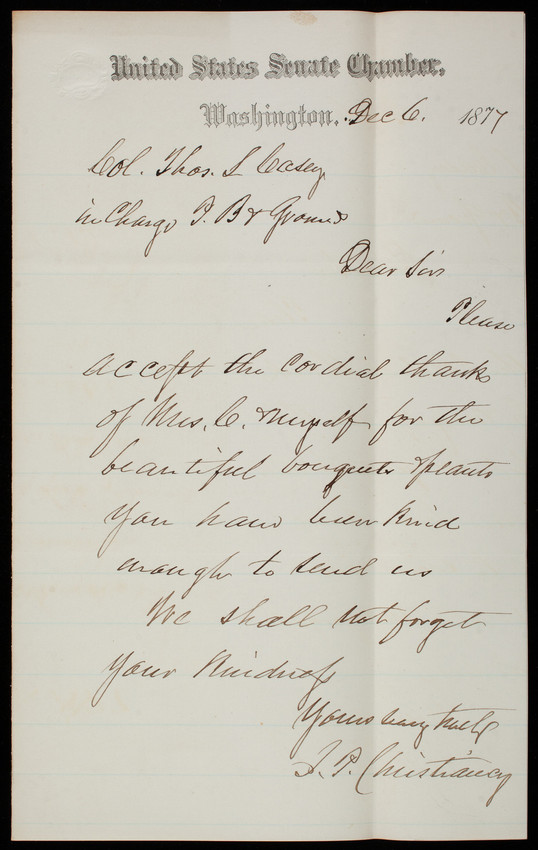 United States Senate Chamber.
Washington. Dec 6. 1877
Col. Thos. L Casey
in Charge P. B & Grounds
Dear Sir
Please
accept the cordial thanks
of Mrs. C. & myself for the
beautiful bouquets & plants
you have been kind
enough to send us
We shall not forget
your kindness
Yours very truly
I. P. Christiancy